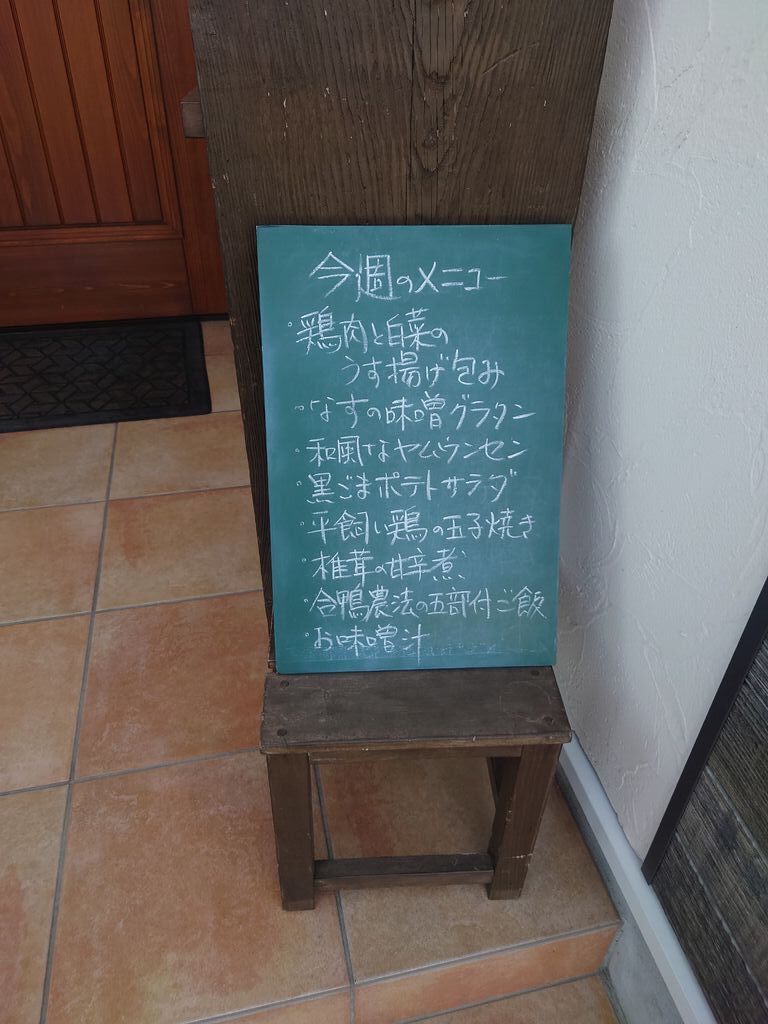 今週のメニュー
・鶏肉と白菜の
うす揚げ包み
・なすの味噌グラタン
・和風なヤムウンセン
・黒ごまポテトサラダ
・平飼い鶏の玉子焼き
・椎茸の甘辛煮
・合鴨農法の五部付ご飯
・お味噌汁